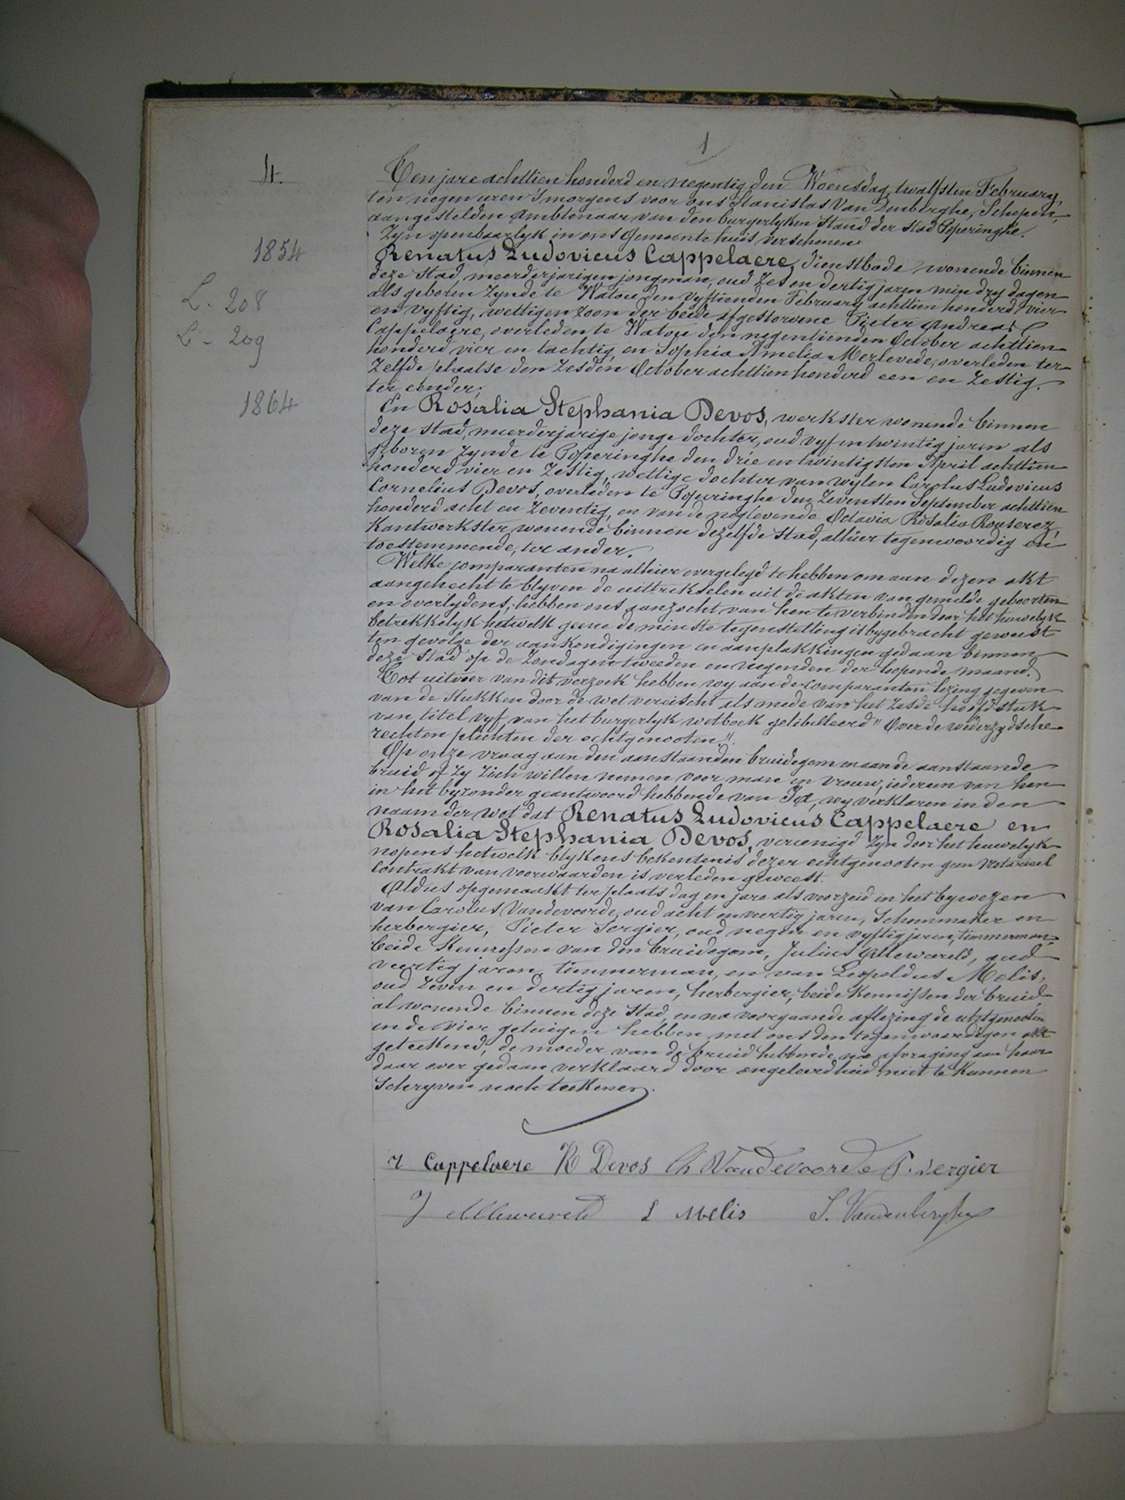 1
4.
Ten jare achttien honderd en negentig den Woensdag, twalfsten February,
ten negen uren 's morgens voor ons Stanislas Van Denberghe, Schepen,
aangestelden Ambtenaar van den burgerlyken Stand der Stad Poperinghe.
Zyn openbaarlyk in ons Gemeentehuis verschenen
1854
Renatus Ludovicus Cappelaere, dienstbode, wonende binnen
deze Stad, meerderjarigen jongman, oud zes en dertig jaren min dry dagen
L. 208
als geboren zynde te Watou den vyftienden February achttien honderd vier
en vyftig, wettigen zoon der beide afgestorvene Pieter Andreas
L. 209
Cappelaere, overleden te Watou den negentienden October achttien
honderd vier en tachtig, en Sophia Amelia Merlevede, overleden ter-
zelfde plaatse den zesden October achttien honderd een en zestig,
ter eender;
1864
En Rosalia Stephania Devos, werkster wonende binnen
deze stad, meerderjarige jonge dochter, oud vyf en twintig jaren als
geboren zynde te Poperinghe den drie en twintigsten April achttien
honderd vier en zestig, wettige dochter van wylen Carolus Ludovicus
Cornelius Devos, overleden te Poperinghe den zevensten September achttien
honderd acht en zeventig, en van de noglevende Octavia Rosalia Routerez,
Kantwerkster, wonende binnen dezelfde stad, alhier tegenwoordig en
toestemmende, ter ander.
Welke comparanten na alhier overgelegd te hebben om aan dezen akt
aangehecht te blyven de uittrekselen uit de akten van gemelde geboorten
en overlydens, hebben ons aanzocht van hen te verbinden door het huwelyk
betrekkelyk hetwelk geene de minste tegenstelling is bygebracht geweest
ten gevolge der aankondigingen en aanplakkingen gedaan binnen
deze Stad op de Zondagen tweeden en negenden der loopende maand.
Tot uitvoer van dit verzoek hebben wy aan de comparanten lezing gegeven
van de stukken door de wet vereischt als mede van het zesde hoofdstuk
van titel vyf van het burgerlyk wetboek getebitteerd "Over de wederzydsche
rechten plichten der echtgenooten".
Op onze vraag aan den aanstaanden bruidegom en aan de aanstaande
bruid of zy zich willen nemen voor man en vrouw, iedereen van hen
in het byzonder geantwoord hebbende van Ja, wy verklaren in den
naam der wet dat Renatus Ludovicus Cappelaere en
Rosalia Stephania Devos, vereenigd zyn door het huwelyk
nopens hetwelk blykens bekentenis dezer echtgenooten geen Notarieel
Contrakt van voorwaarden is verleden geweest.
Aldus opgemaakt ter plaats dag en jare als voorzeid in het bywezen
van Carolus Vandevoorde, oud acht en veertig jaren, Schoenmaker en
herbergier, Pieter Sergier, oud negen en vyftig jaren, timmerman,
beide Kennissen van den bruidegom, Julius Alleweireld, oud
veertig jaren, timmerman, en van Leopoldus Melis,
oud zeven en dertig jaren, herbergier, beide Kennissen der bruid,
al wonende binnen deze Stad, en na voorgaande aflezing de echtgenooten
en de vier getuigen hebben met ons den tegenwoordigen akt
geteekend, de moeder van de bruid hebbende na afvraging aan haar
daar over gedaan verklaard door ongeleerdheid niet te kunnen
Schryven noch teekenen.
r Cappelaere R Devos Ch Vandevoorde P. Sergier
J Alleweireld L Melis S. Vandenberghe